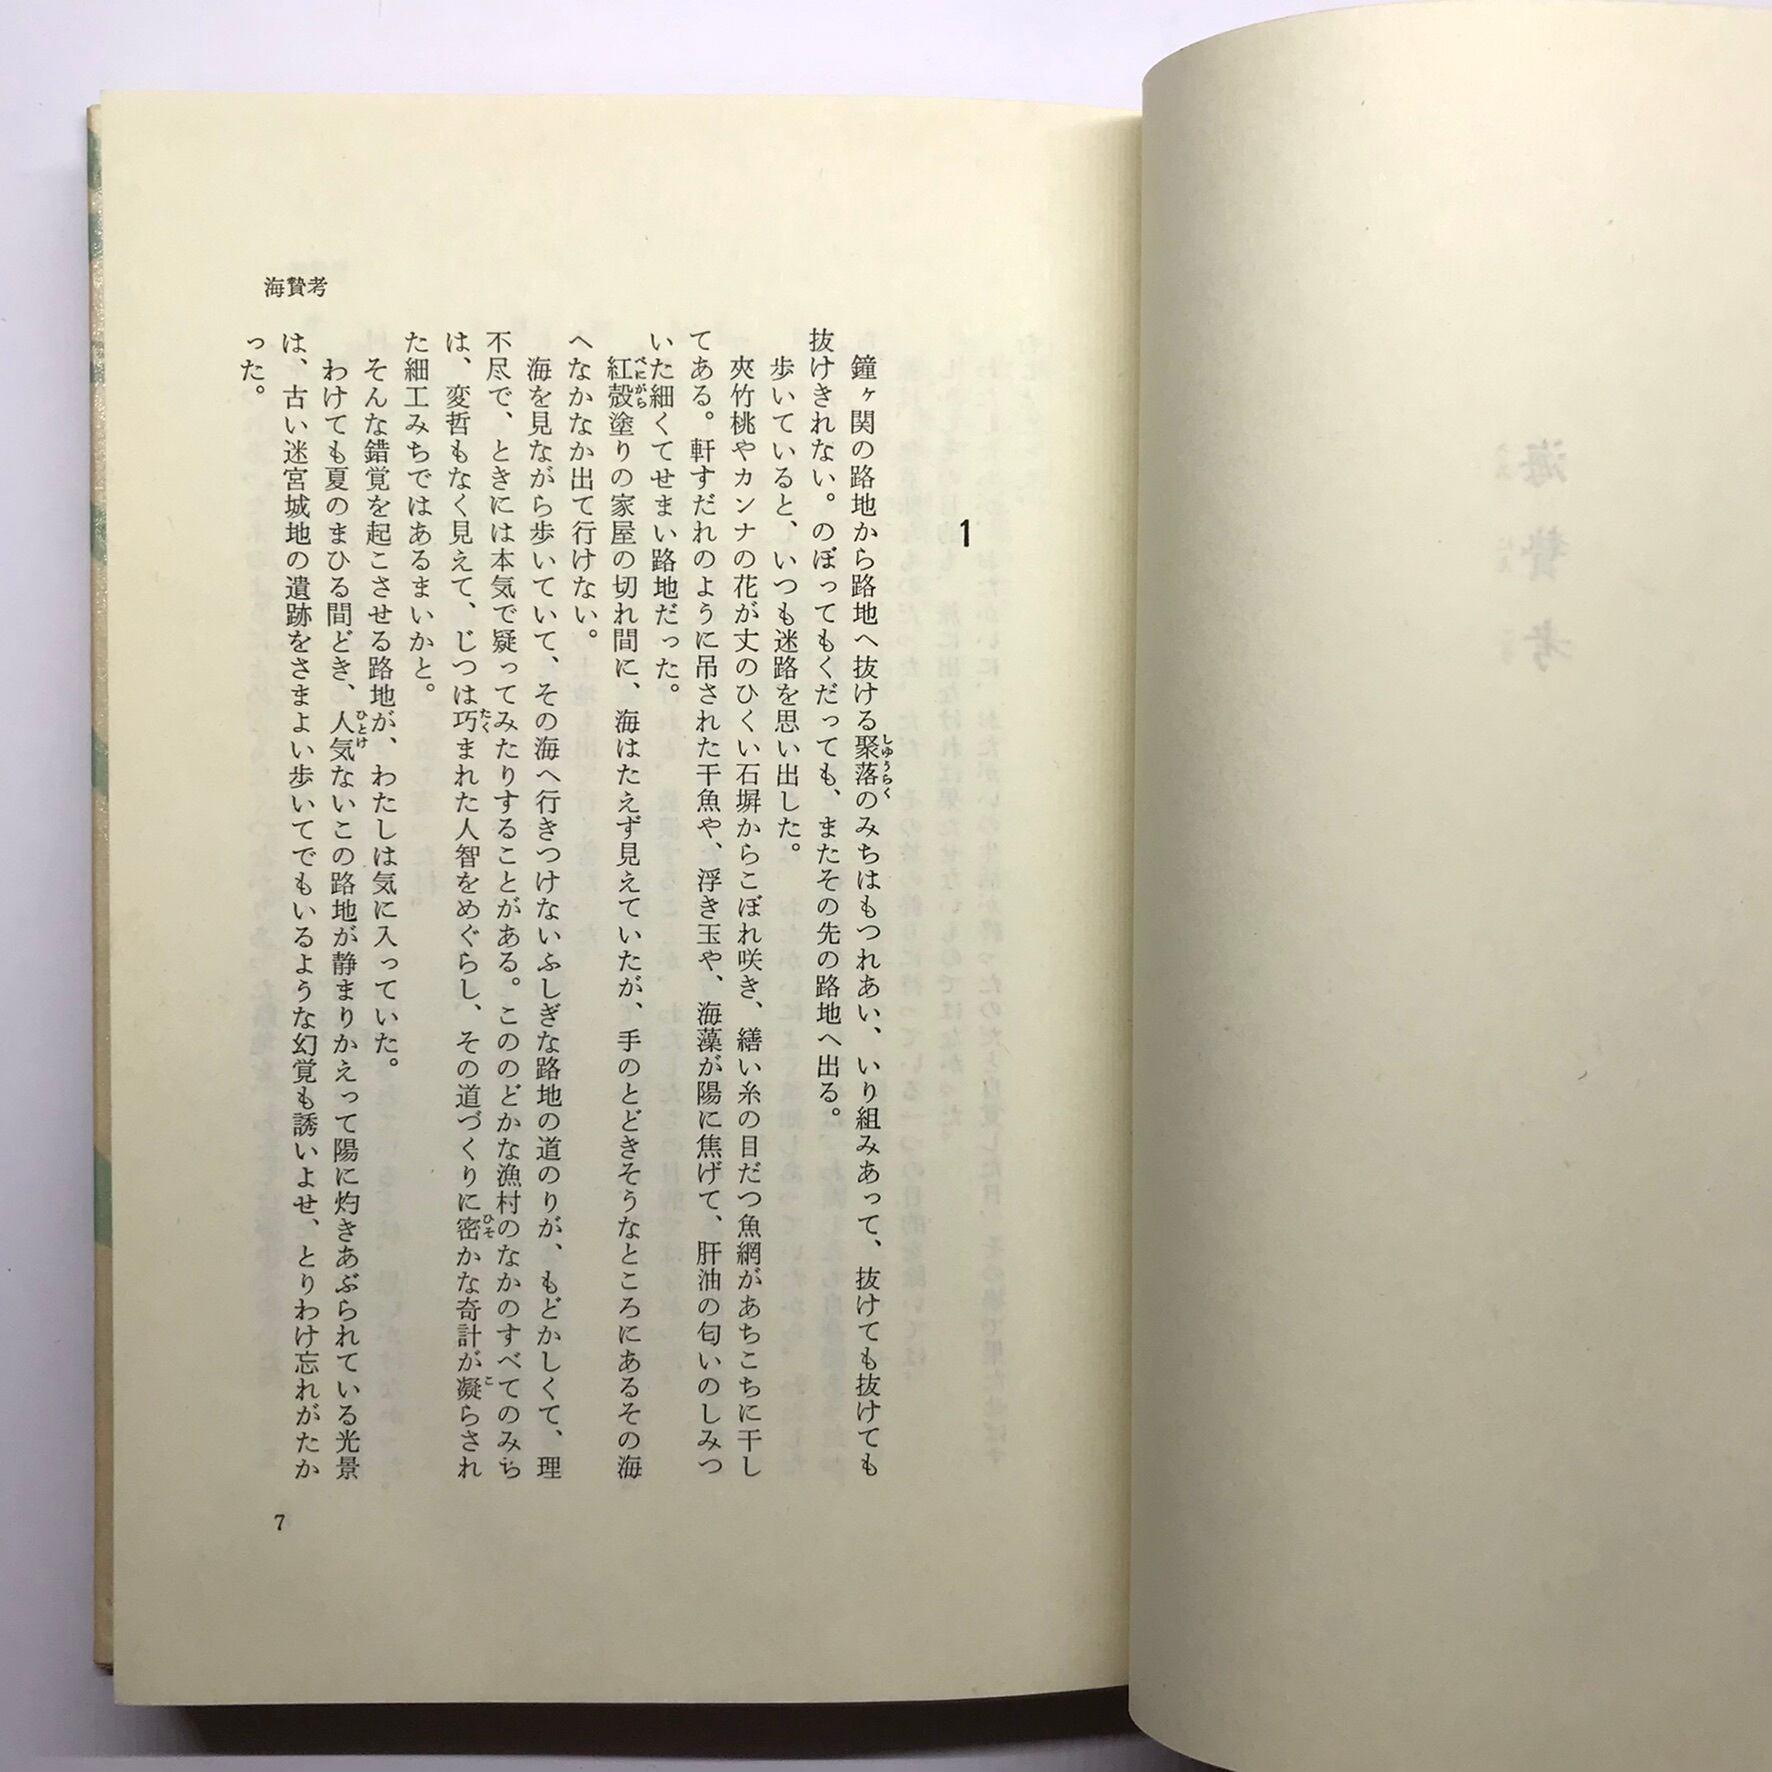 海贄考
1
鐘ヶ関の路地から路地へ抜ける聚落のみちはもつれあい、いり組みあって、抜けても抜けても
抜けきれない。のぼってもくだっても、またその先の路地へ出る。
歩いていると、いつも迷路を思い出した。
夾竹桃やカンナの花が丈のひくい石塀からこぼれ咲き、繕い糸の目だつ魚網があちこちに干し
てある。軒すだれのように吊された干魚や、浮き玉や、海藻が陽に焦げて、肝油の匂いのしみつ
いた細くてせまい路地だった。
紅殻塗りの家屋の切れ間に、海はたえず見えていたが、手のとどきそうなところにあるその海
へなかなか出て行けない。
海を見ながら歩いていて、その海へ行きつけないふしぎな路地の道のりが、もどかしくて、理
不尽で、ときには本気で疑ってみたりすることがある。こののどかな漁村のなかのすべてのみち
は、変哲もなく見えて、じつは巧まれた人智をめぐらし、その道づくりに密かな奇計が凝らされ
た細工みちではあるまいかと。
そんな錯覚を起こさせる路地が、わたしは気に入っていた。
わけても夏のまひる間どき、人気ないこの路地が静まりかえって陽に灼きあぶられている光景
は、古い迷宮城地の遺跡をさまよい歩いてでもいるような幻覚も誘いよせ、とりわけ忘れがたか
った。
しゆうらく
べにがら
たく
ひそ
こ
ひとけ
7
海贄考